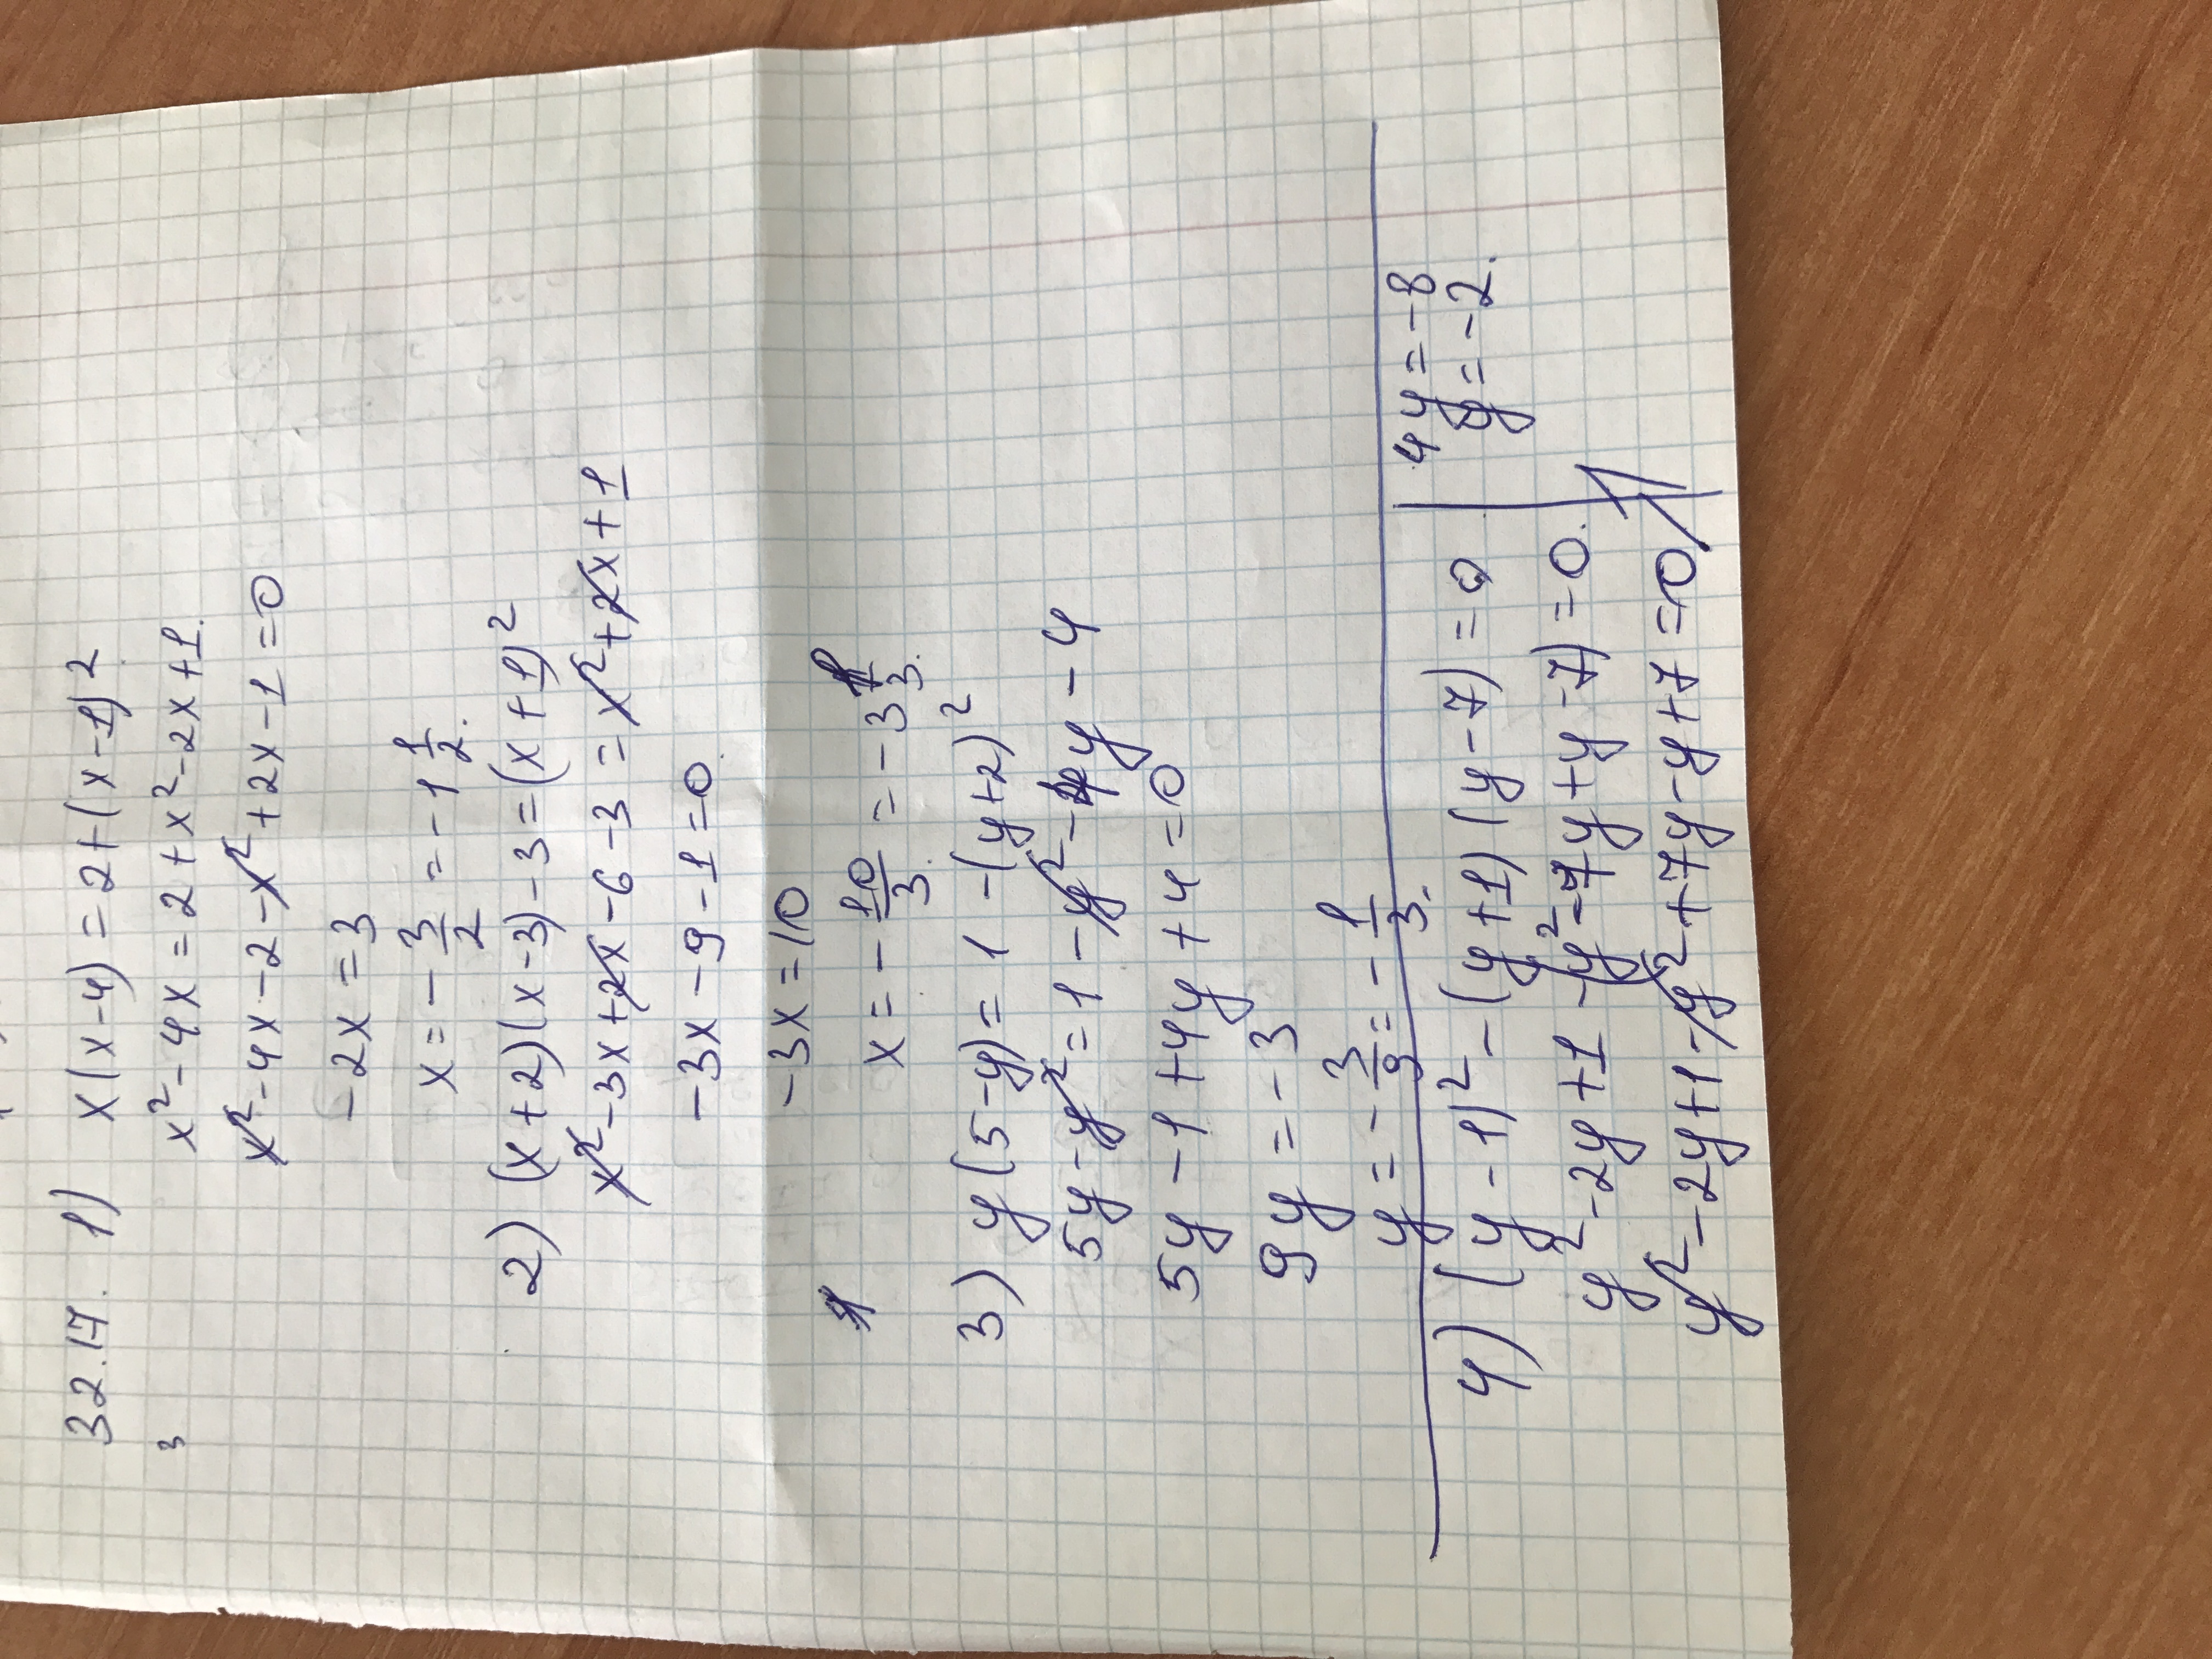 32.17. 1) x(x-4)=2+(x-1)²
з x²-4x=2+x²-2x+1.
x²-4x-2-x²+2x-1=0
-2x=3
x=-3/2=-1 1/2.
2) (x+2)(x-3)-3=(x+1)²
x²-3x+2x-6-3=x²+2x+1
-3x-9-1=0.
-3x=10
x=-10/3=-3 1/3.
3) y(5-y)=1-(y+2)²
5y-y²=1-y²-4y-4
5y-1+4y+4=0
9y=-3
y=-3/9=-1/3.
4) (y-1)²-(y+1)(y-7)=0
y²-2y+1-(y²-7y+y-7)=0.
y²-2y+1-y²+7y-y+7=0
4y=-8
y=-2.